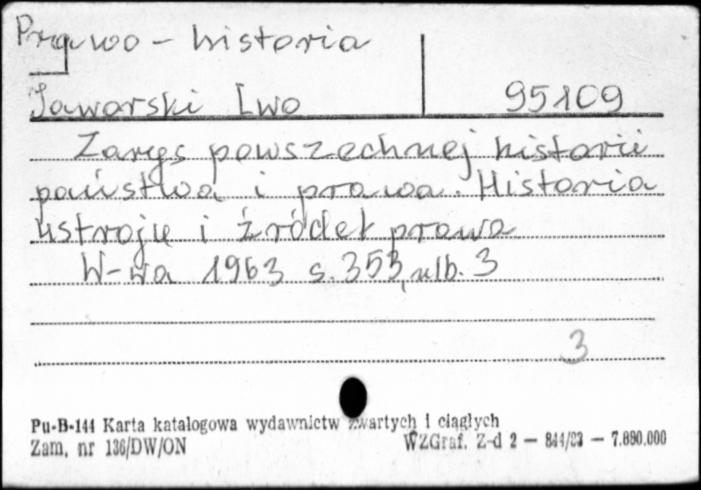 Prawo - historia
Jaworski Iwo 95109
Zarys powszechnej historii
państwa i prawa. Historia
ustroju i źródeł prawa
W-wa 1963 s. 353, nlb. 3
3
Pu-B-144 Karta katalogowa wydawnictw zwartych i ciągłych
Zam. nr 136/DW/ON WZGraf. Z-d 2 — 844/83 — 7.890.000